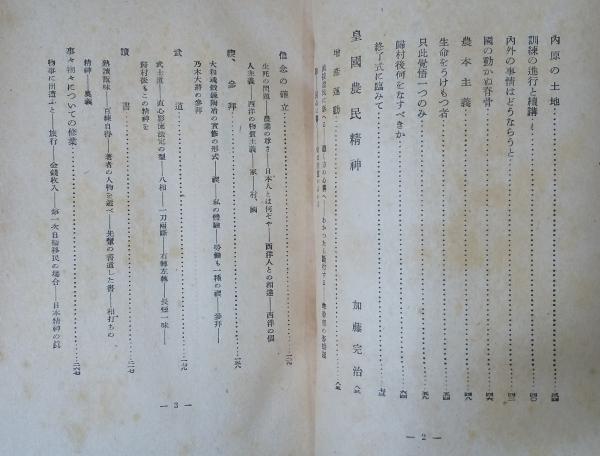 内原の土地
訓練の進行と續講
内外の事情はどうならうと
國の動かぬ脊骨
農本主義
生命をうけもつ者
只此覺悟一つのみ
歸村後何をなすべきか
終了式に臨みて
皇國農民精神 加藤完治
增産運動
— 2 —
信念の確立
生死の問題——農業の尊さ——日本人とは何ぞや——西洋人との相違——西洋の個
人主義——西洋の物質主義——家——村、國
禊、參拜
大和魂鍛錬陶冶の實修の形式——禊——私の體驗——勞働も一種の禊——參拜——
乃木大將の參拜
武道
武士道——直心影流法定の型——八相——一刀兩斷——右轉左轉——長短一味——
歸村後もこの精神を
讀書
熟讀翫味——百練自得——著者の人物を選べ——先輩の書遺した書——相打ちの
精神——奥義
事々物々についての修業
物事に出遭ふと——旅行——金錢收入——第一次自輪移民の場合——日本精神の眞
— 3 —